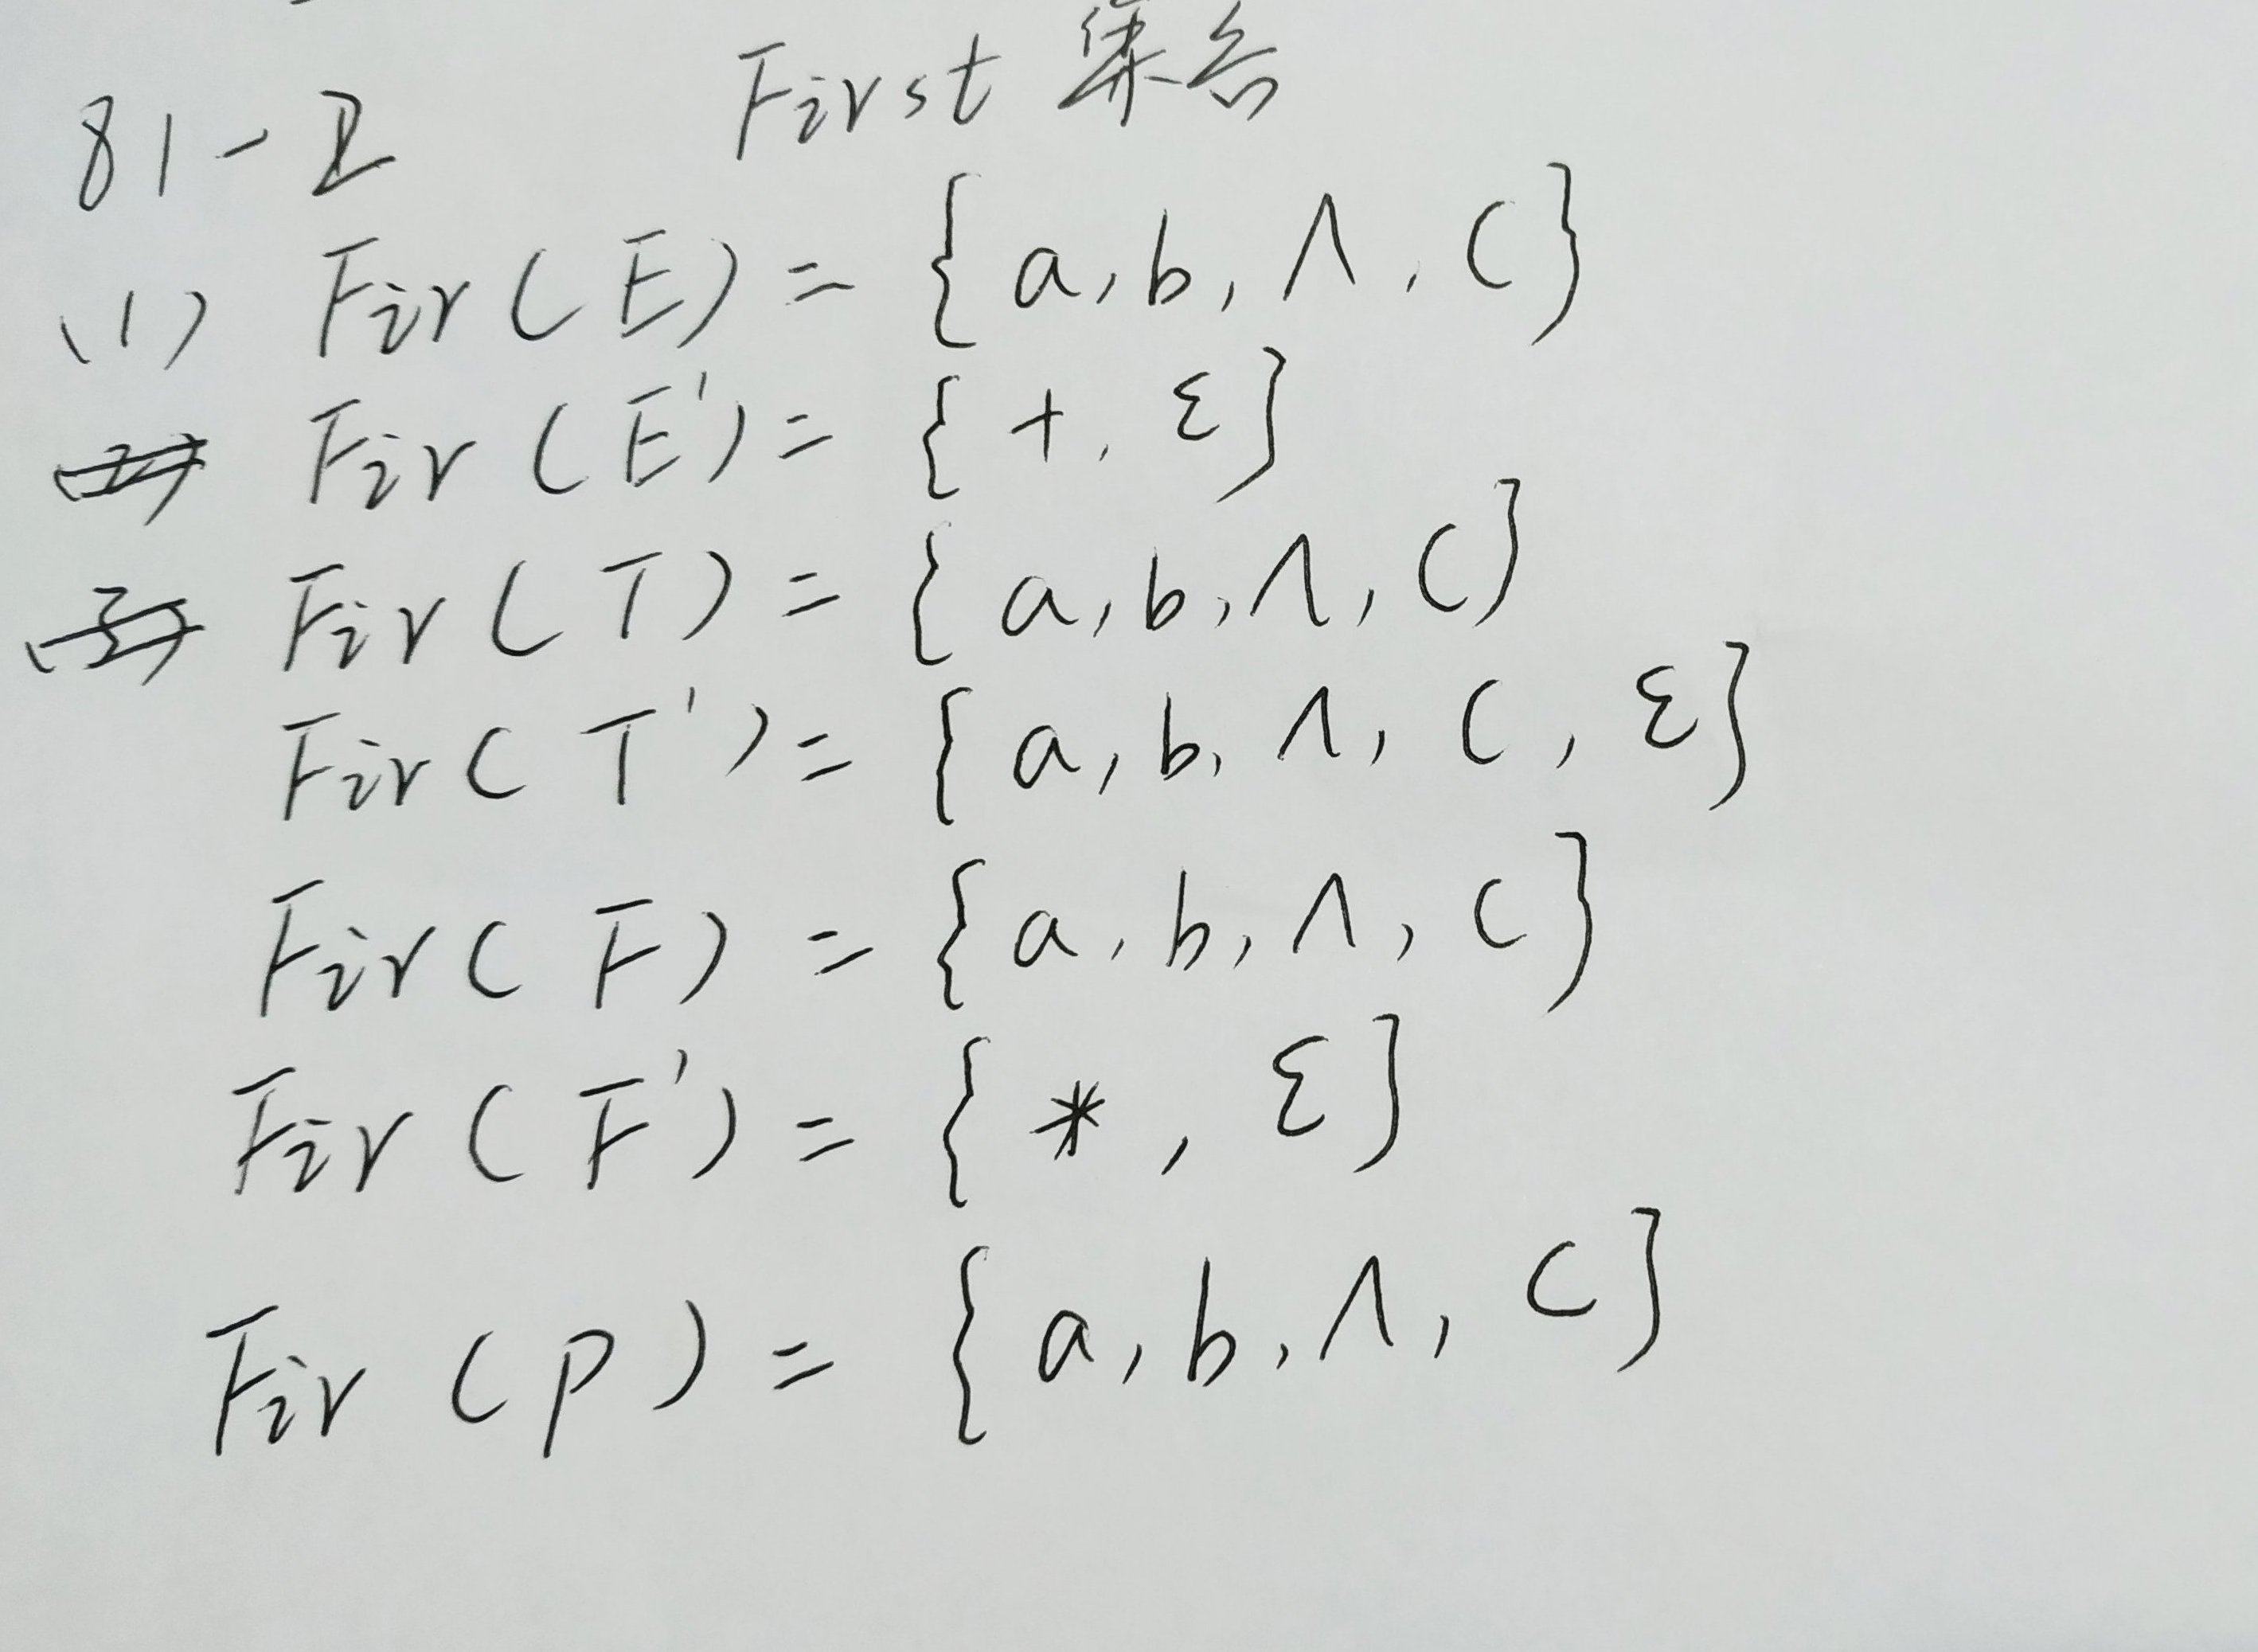 First 集合
81-2
(1) Fir(E) = {a, b, ∧, (}
Fir(E') = {+, ε}
Fir(T) = {a, b, ∧, (}
Fir(T') = {a, b, ∧, (, ε}
Fir(F) = {a, b, ∧, (}
Fir(F') = {*, ε}
Fir(P) = {a, b, ∧, (}